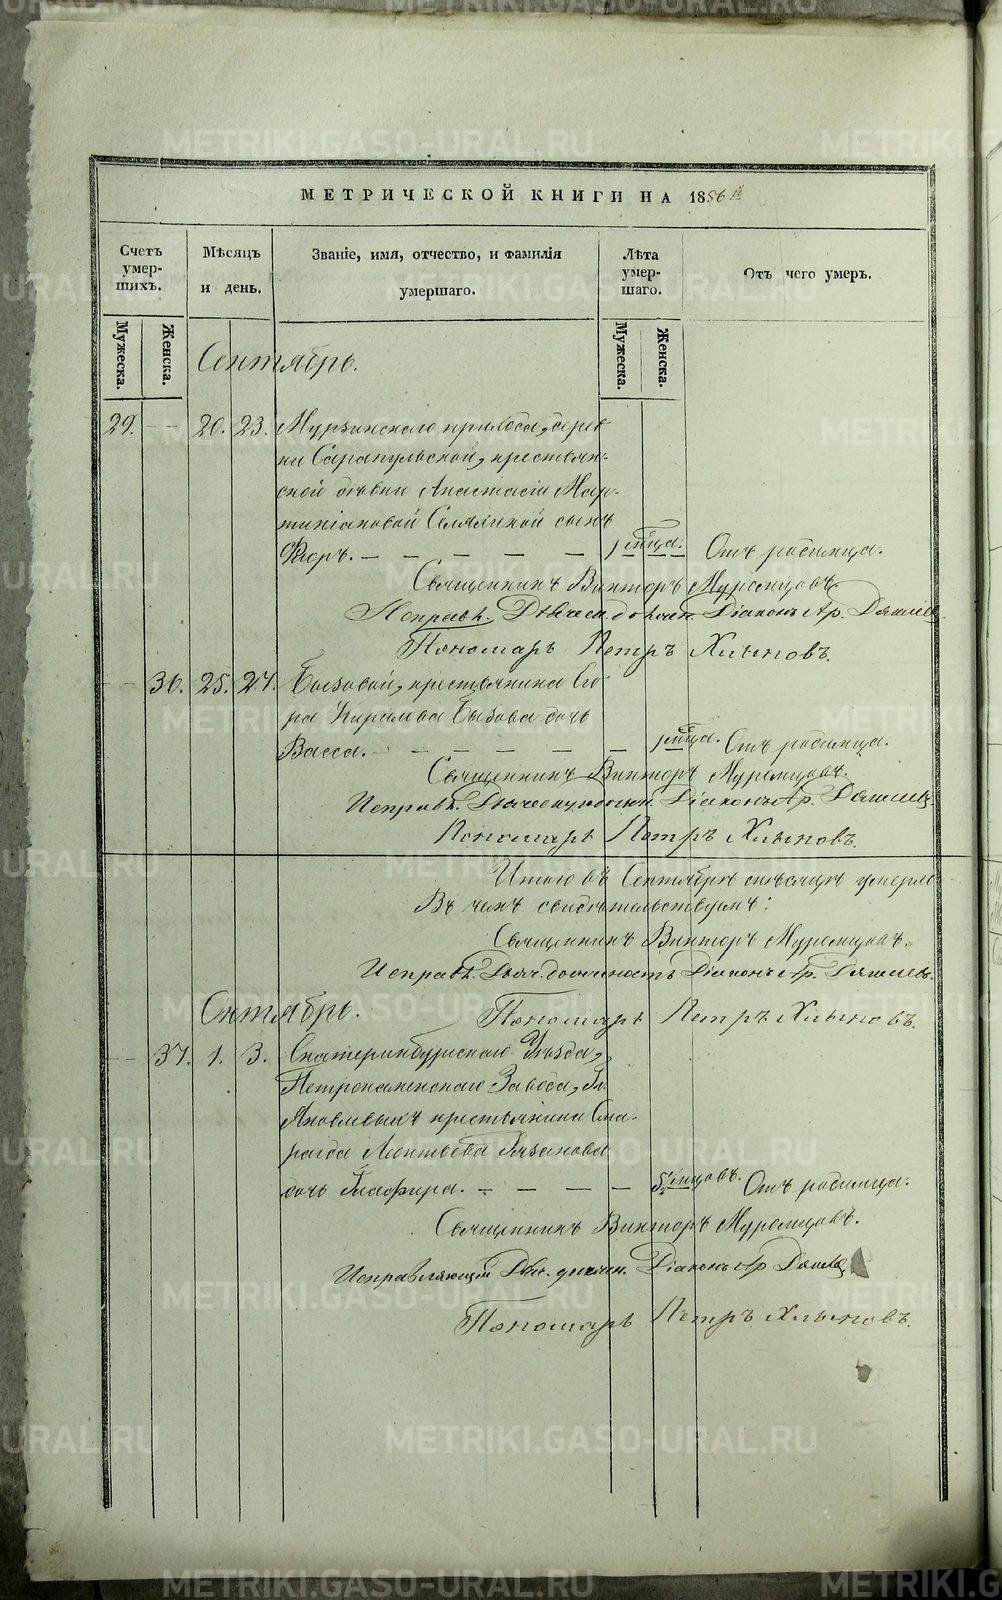 МЕТРИЧЕСКОЙ КНИГИ НА 1856й
Счетъ умер-шихъ.
Мужеска.
Женска.
Мѣсяцъ и день.
Званіе, имя, отчество, и фамилія умершаго.
Лѣта умер-шаго.
Мужеска.
Женска.
Отъ чего умеръ.
Сентябрь.
29. 20. 23. Мурзинскаго прихода, дерев-
ни Сарапульской, крестьян-
ской дѣвки Анастасіи Мар-
тиніановой сынъ
1 мѣсяца. Отъ родимца.
Священникъ Викторъ Муромцовъ
Исправл. должн. Діаконъ Ар.
Пономарь Петръ Хлыновъ.
36. 25. 27. Бызовой, крестьянина Его-
ра Кирилова Бызова дочь
Васса. 1 мѣсяца. Отъ родимца.
Священникъ Викторъ Муромцовъ.
Исправл. Діаконъ Ар.
Пономарь Петръ Хлыновъ.
Итого въ Сентябрѣ мѣсяцѣ умерло
Въ чемъ свидѣтельствуемъ:
Священникъ Викторъ Муромцовъ.
Исправл. Дьяч. должность Діаконъ Ар.
Пономарь Петръ Хлыновъ.
37. 1. 3. Екатеринбургскаго Уѣзда,
Петрокаменскаго Завода, Гг.
Яковлевыхъ крестьянина Сма-
рагда Леонтьева Рязанова
дочь Глафира. 5 мѣсяцовъ. Отъ родимца.
Священникъ Викторъ Муромцовъ.
Исправляющій Діаконъ Ар
Пономарь Петръ Хлыновъ.
METRIKI.GASO-URAL.RU